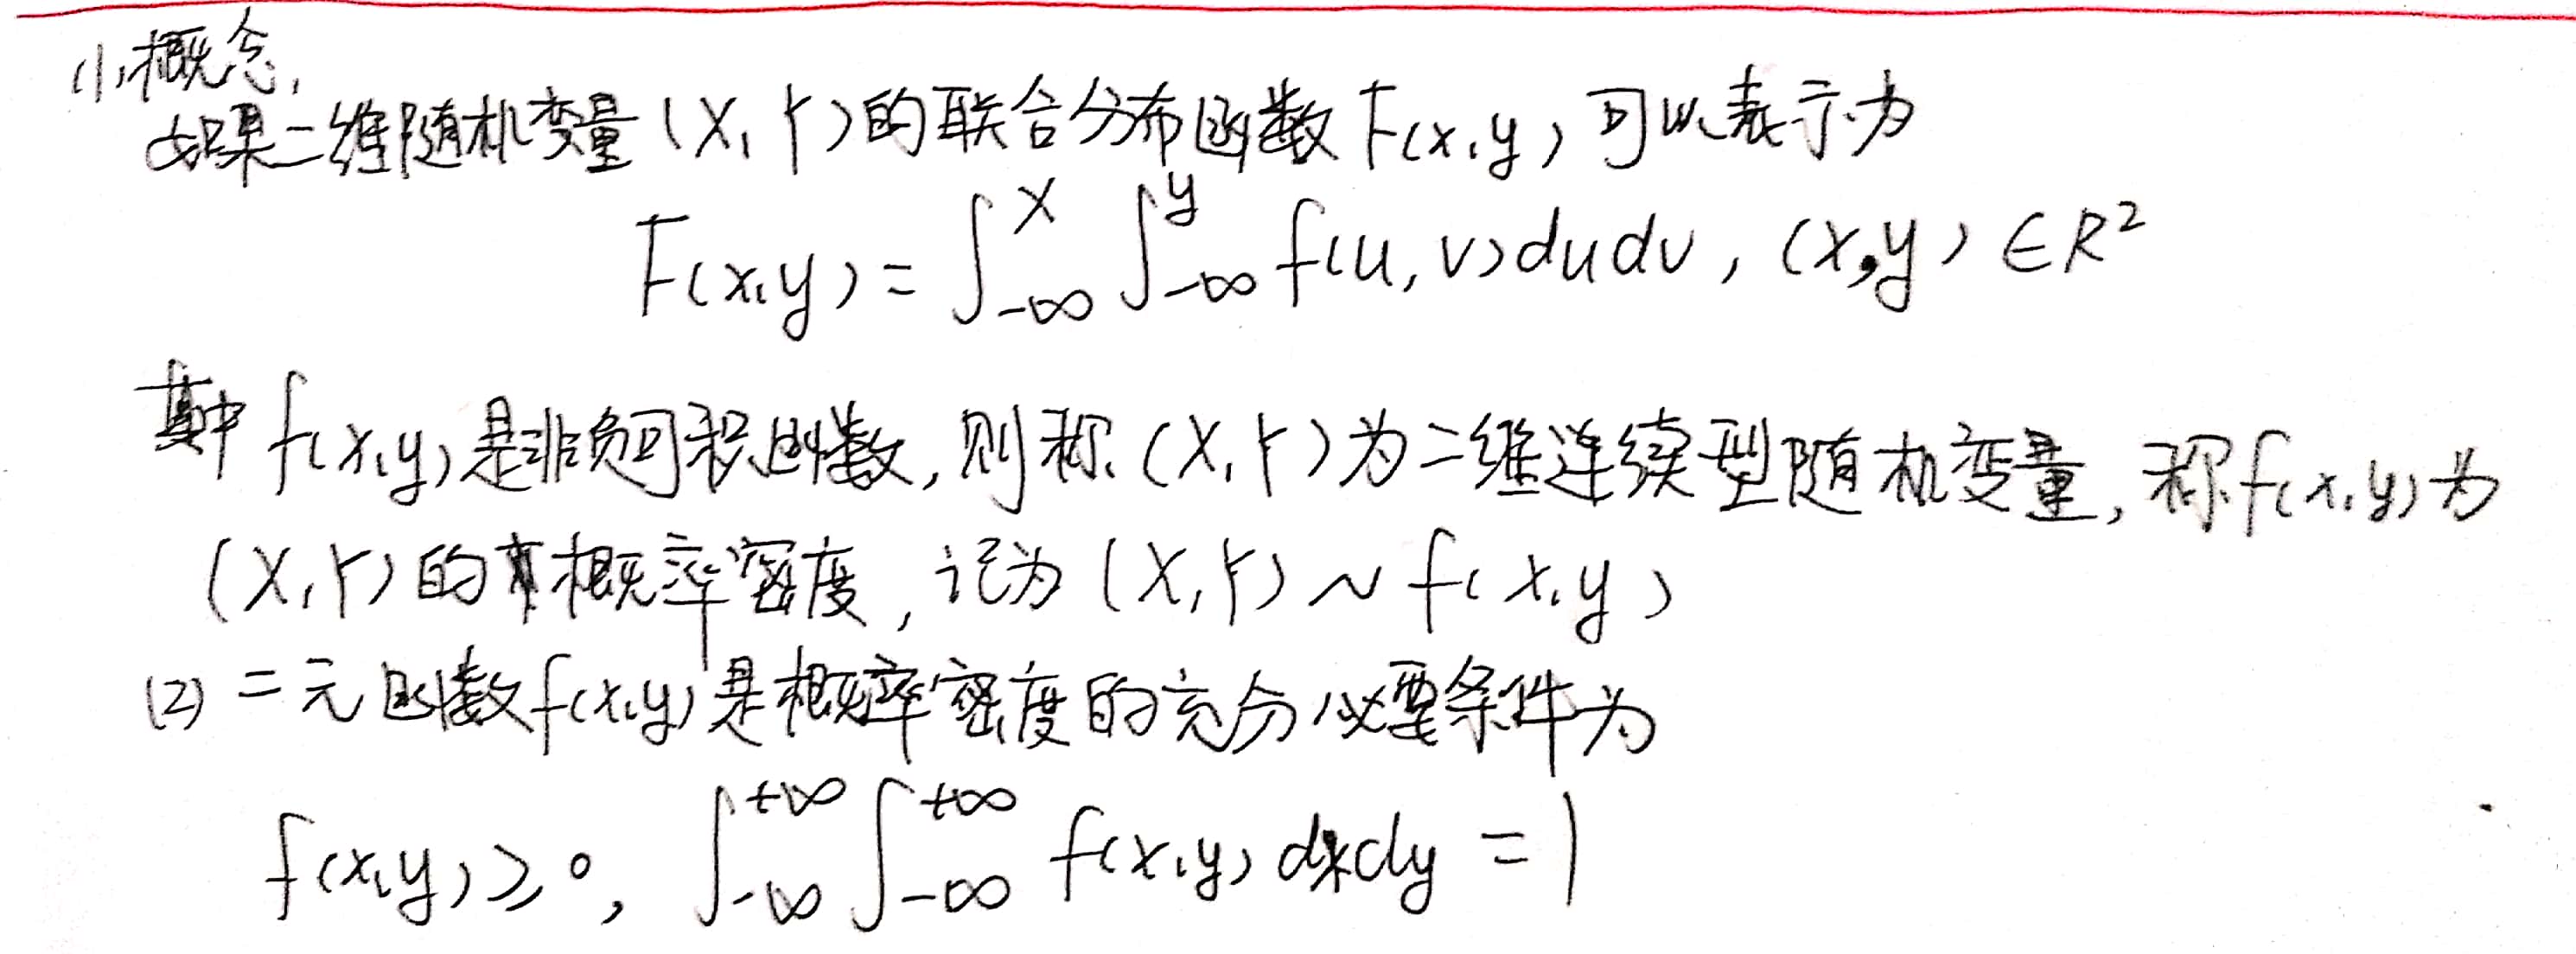 (1)概念,
如果二维随机变量(X,Y)的联合分布函数F(x,y)可以表示为
F(x,y)=∫_{-∞}^{x}∫_{-∞}^{y}f(u,v)dudv,(x,y)∈R²
其中f(x,y)是非负可积函数,则称(X,Y)为二维连续型随机变量,称f(x,y)为
(X,Y)的概率密度,记为(X,Y)~f(x,y)
(2)二元函数f(x,y)是概率密度的充分必要条件为
f(x,y)≥0,∫_{-∞}^{+∞}∫_{-∞}^{+∞}f(x,y)dxdy=1